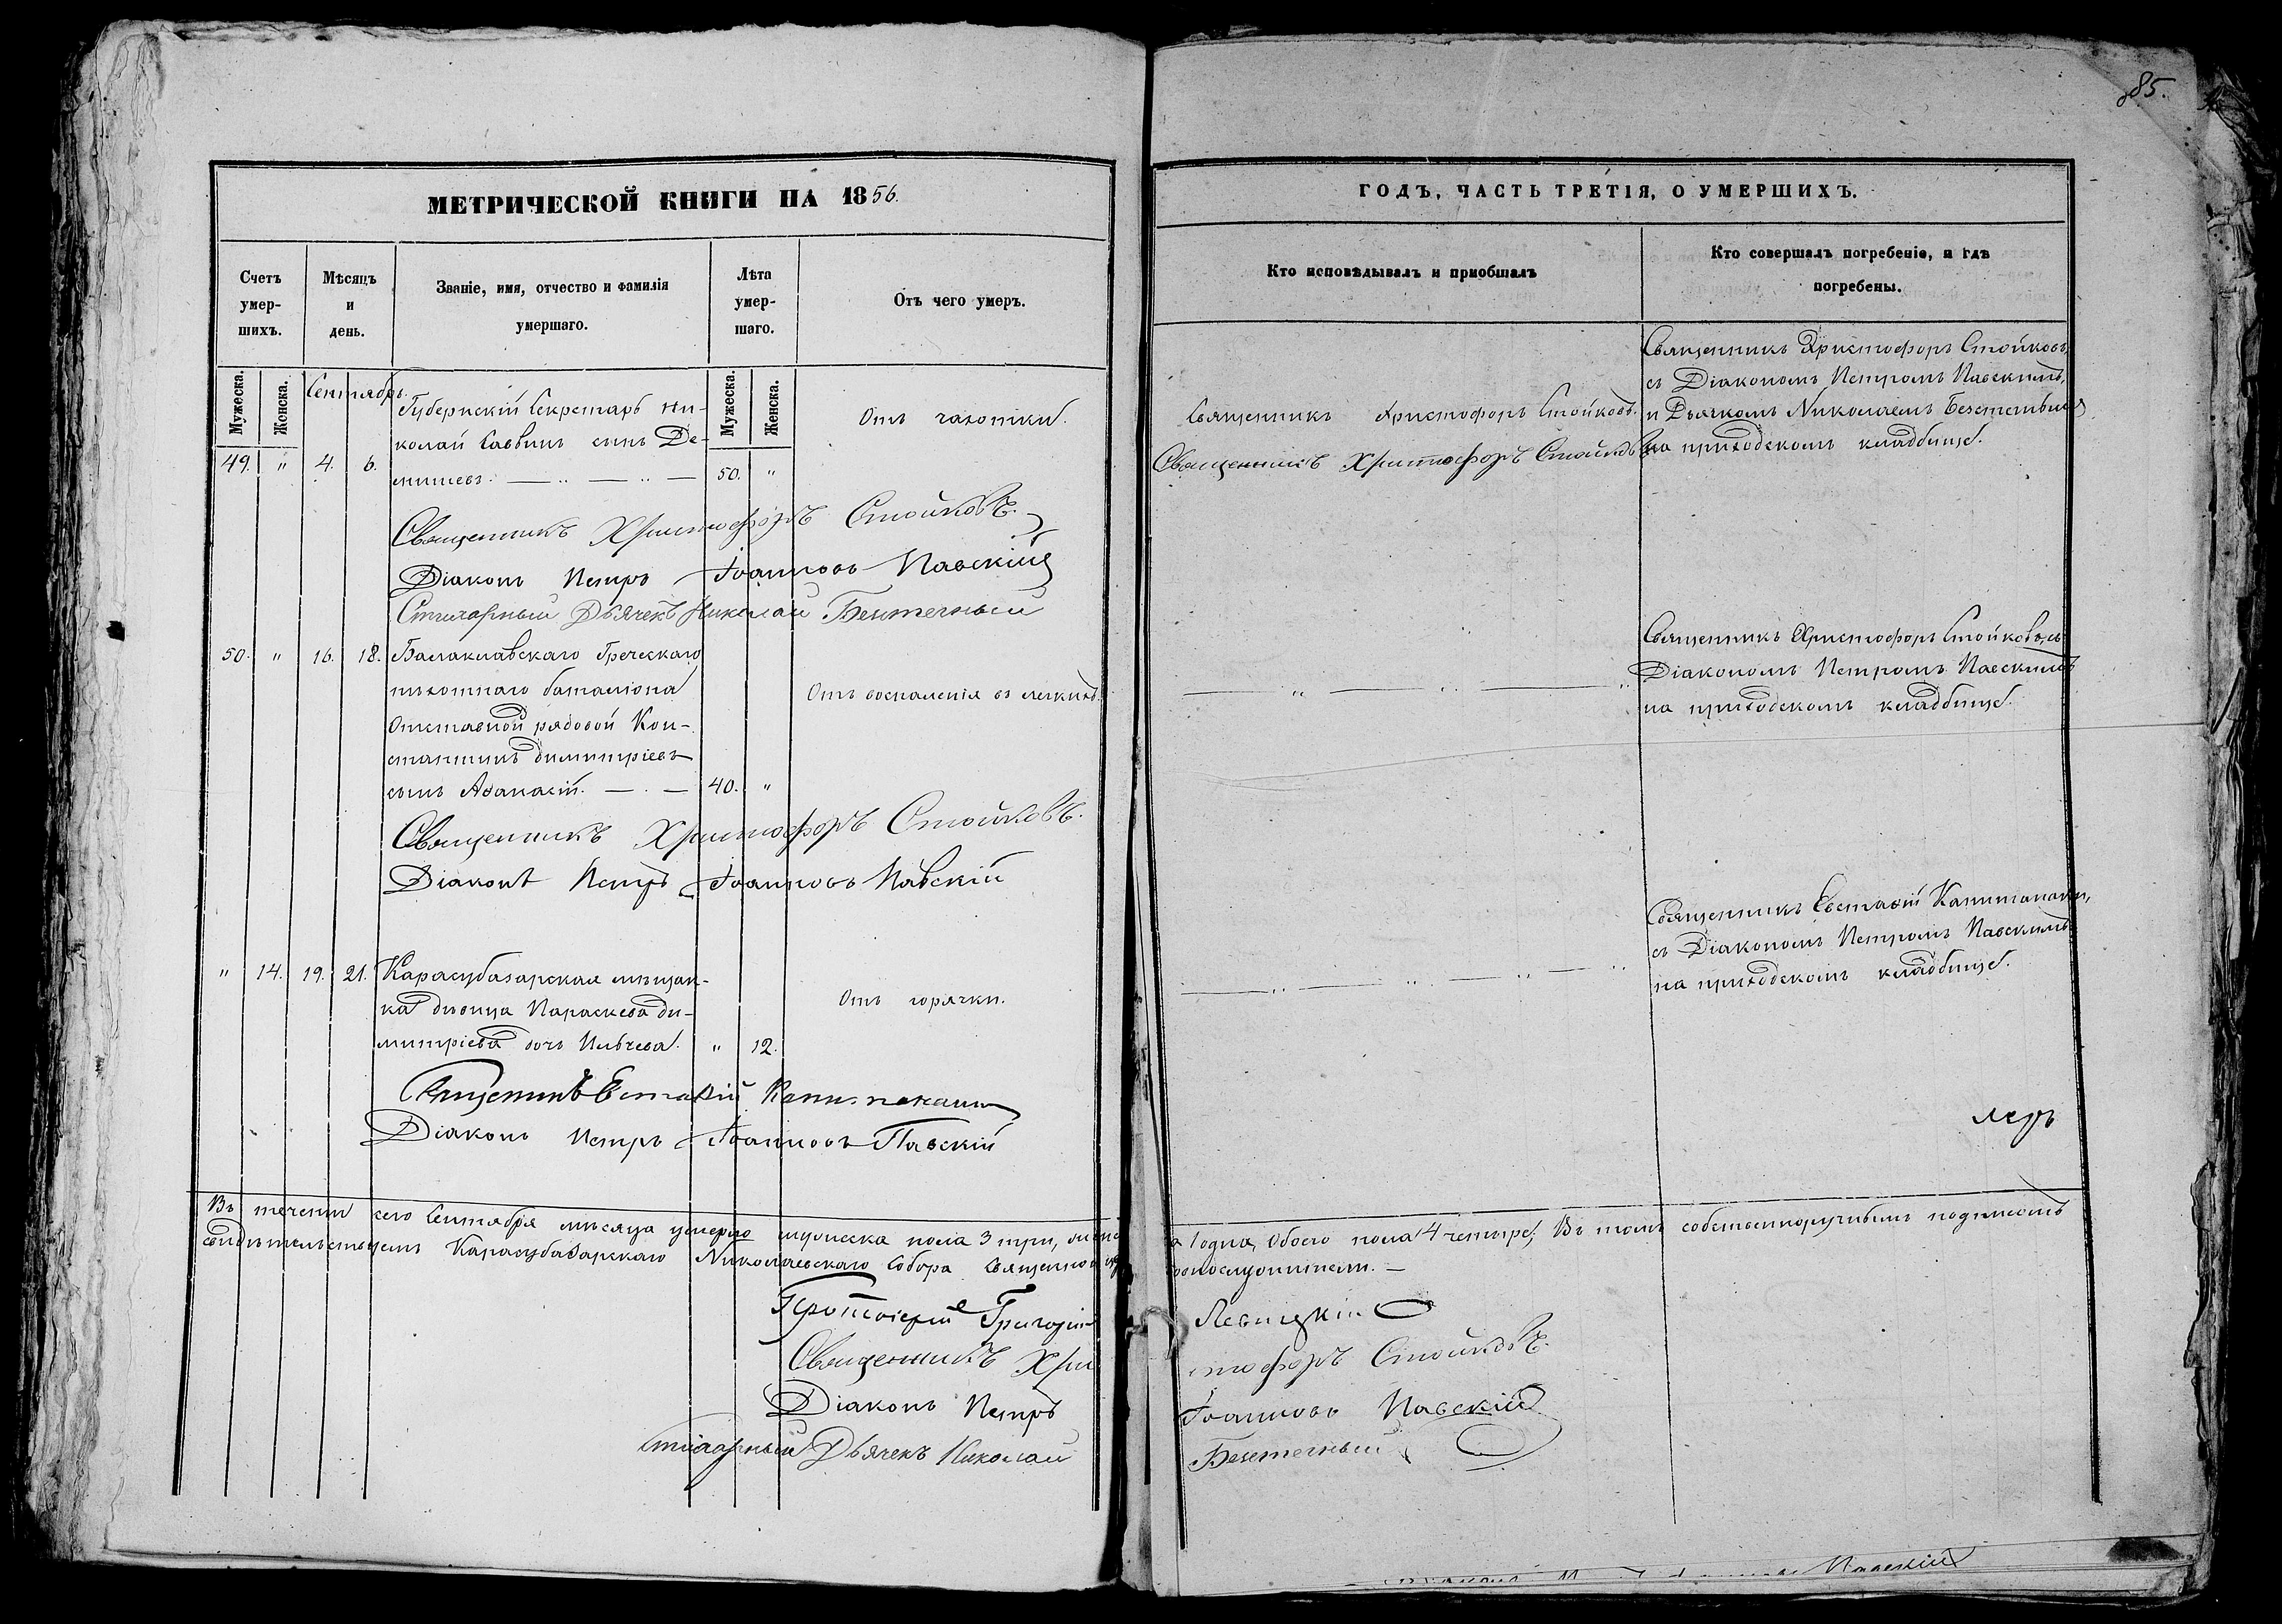 885.
МЕТРИЧЕСКОЙ КНИГИ НА 1856.
Счетъ
умер-
шихъ.
Мѣсяцъ
и
день.
Званіе, имя, отчество и фамилія
умершаго.
Лѣта
умер-
шаго.
Отъ чего умеръ.
Мужеска.
Женска.
Сентябрь.
Мужеска.
Женска.
Губернскій Секретарь Ни-
колай Саввинъ сынъ Де-
49. " 4. 6.
50. "
Отъ чахотки.
Священникъ Христофоръ Стойковъ.
Діаконъ Петръ Іоанновъ Павскій
Стихарный Дьячекъ Николай Безстечный
50. " 16. 18. Балаклавскаго Греческаго
пѣхотнаго баталіона
Отставной рядовой Кон-
стантинъ Димитріевъ
сынъ Аѳанасій. 40. "
Отъ воспаленія въ легкихъ.
Священникъ Христофоръ Стойковъ.
Діаконъ Петръ Іоанновъ Павскій
" 14. 19. 21. Карасубазарская мѣщан-
ка дѣвица Параскева Ди-
митріева дочь " 12.
Отъ горячки.
Священникъ Евстаѳій
Діаконъ Петръ Іоанновъ Павскій
Въ теченіи сего Сентября мѣсяца умерло мужеска пола 3 три,
свидѣтельствуемъ Карасубазарскаго Николаевскаго Собора
Протоіерей Григорій
Священникъ Хри
Діаконъ Петръ
Стихарный Дьячекъ Николай
ГОДЪ, ЧАСТЬ ТРЕТІЯ, О УМЕРШИХЪ.
Кто исповѣдывалъ и пріобщалъ
Кто совершалъ погребеніе, и гдѣ
погребены.
Священникъ Христофоръ Стойковъ.
Священникъ Христофоръ Стойковъ
Священникъ Христофоръ Стойковъ,
съ Діакономъ Петромъ Павскимъ,
и Дьячкомъ Николаемъ
на приходскомъ кладбищѣ.
Священникъ Христофоръ Стойковъ, съ
Діакономъ Петромъ Павскимъ
на приходскомъ кладбищѣ.
Священникъ Евстаѳій Капитанаки,
съ Діакономъ Петромъ Павскимъ
на приходскомъ кладбищѣ.
а 1 одна, Обоего пола 4 четыре; Въ томъ собственноручнымъ подписомъ
Левицкій
стофоръ Стойковъ.
Іоанновъ Павскій
Безстечный
Павскій